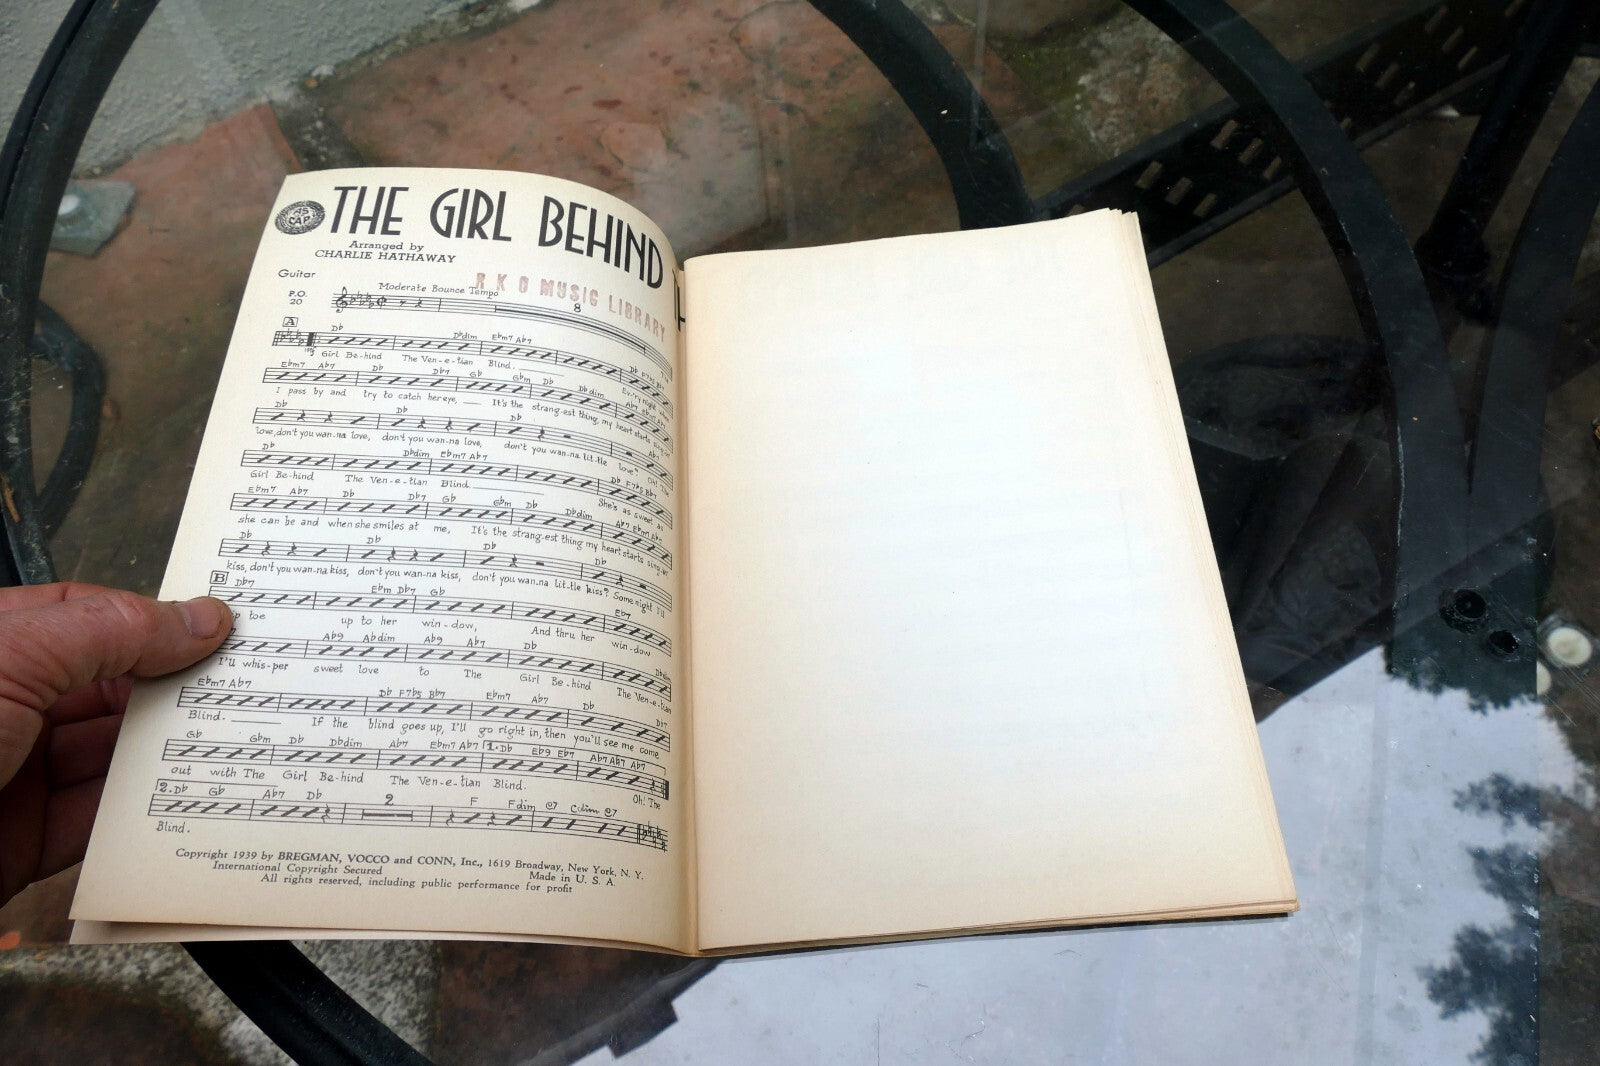 AS
CAP
THE GIRL BEHIND
Arranged by
CHARLIE HATHAWAY
R K O MUSIC LIBRARY
Guitar
P.O.
20
Moderate Bounce Tempo
8
A
Db Dbdim Ebm7 Ab7 Db F7b5
Girl Be-hind The Ven-e-tian Blind. Ev'ry night when
Ebm7 Ab7 Db Db7 Gb Gbm Db Dbdim Ab7 Ebm7 Ab7
I pass by and try to catch her eye, It's the strang-est thing, my heart starts
Db Db Db Ab7
love, don't you wan-na love, don't you wan-na love, don't you wan-na lit-tle love? Oh! The
Db Dbdim Ebm7 Ab7 Db F7b5 Bb7
Girl Be-hind The Ven-e-tian Blind. She's as sweet as
Ebm7 Ab7 Db Db7 Gb Gbm Db Dbdim Ab7 Ebm7 Ab7
she can be and when she smiles at me, It's the strang-est thing my heart starts sing-in'
Db Db Db Db
kiss, don't you wan-na kiss, don't you wan-na kiss, don't you wan-na lit-tle kiss? Some night I'll
B
Db7 Ebm Db7 Gb Eb7
toe up to her win-dow, And thru her win-dow
Ab9 Abdim Ab9 Ab7 Db Dbdim
I'll whis-per sweet love to The Girl Be-hind The Ven-e-tian
Ebm7 Ab7 Db F7b5 Bb7 Ebm7 Ab7 Db Db7
Blind. If the blind goes up, I'll go right in, then you'll see me come
Gb Gbm Db Dbdim Ab7 Ebm7 Ab7 1. Db Eb9 Eb7 Ab7 Ab7 Ab7
out with The Girl Be-hind The Ven-e-tian Blind. Oh! The
2. Db Gb Ab7 Db 2 F Fdim C7 C#dim C7
Blind.
Copyright 1939 by BREGMAN, VOCCO and CONN, Inc., 1619 Broadway, New York, N. Y.
International Copyright Secured Made in U. S. A.
All rights reserved, including public performance for profit